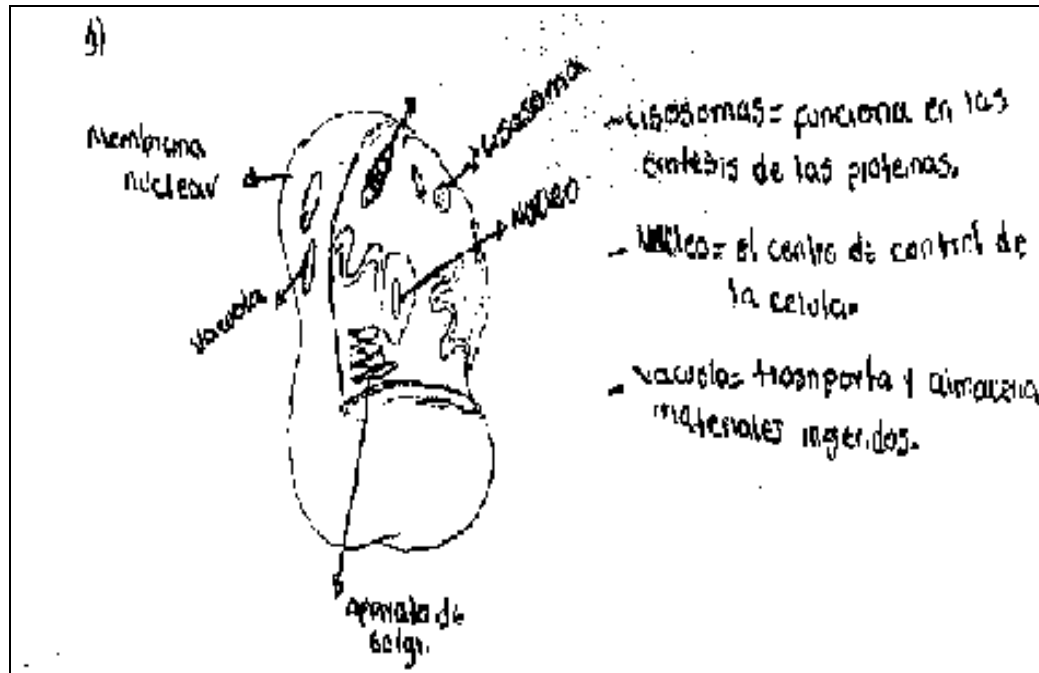 g)
Membrana
nuclear
Lisosoma
Núcleo
Vacuola
Aparato de
Golgi.
- Lisosomas = funciona en las
sintesis de las proteinas.
- Núcleo = el centro de control de
la celula.
- Vacuola = trasnporta y almacena
materiales ingeridos.